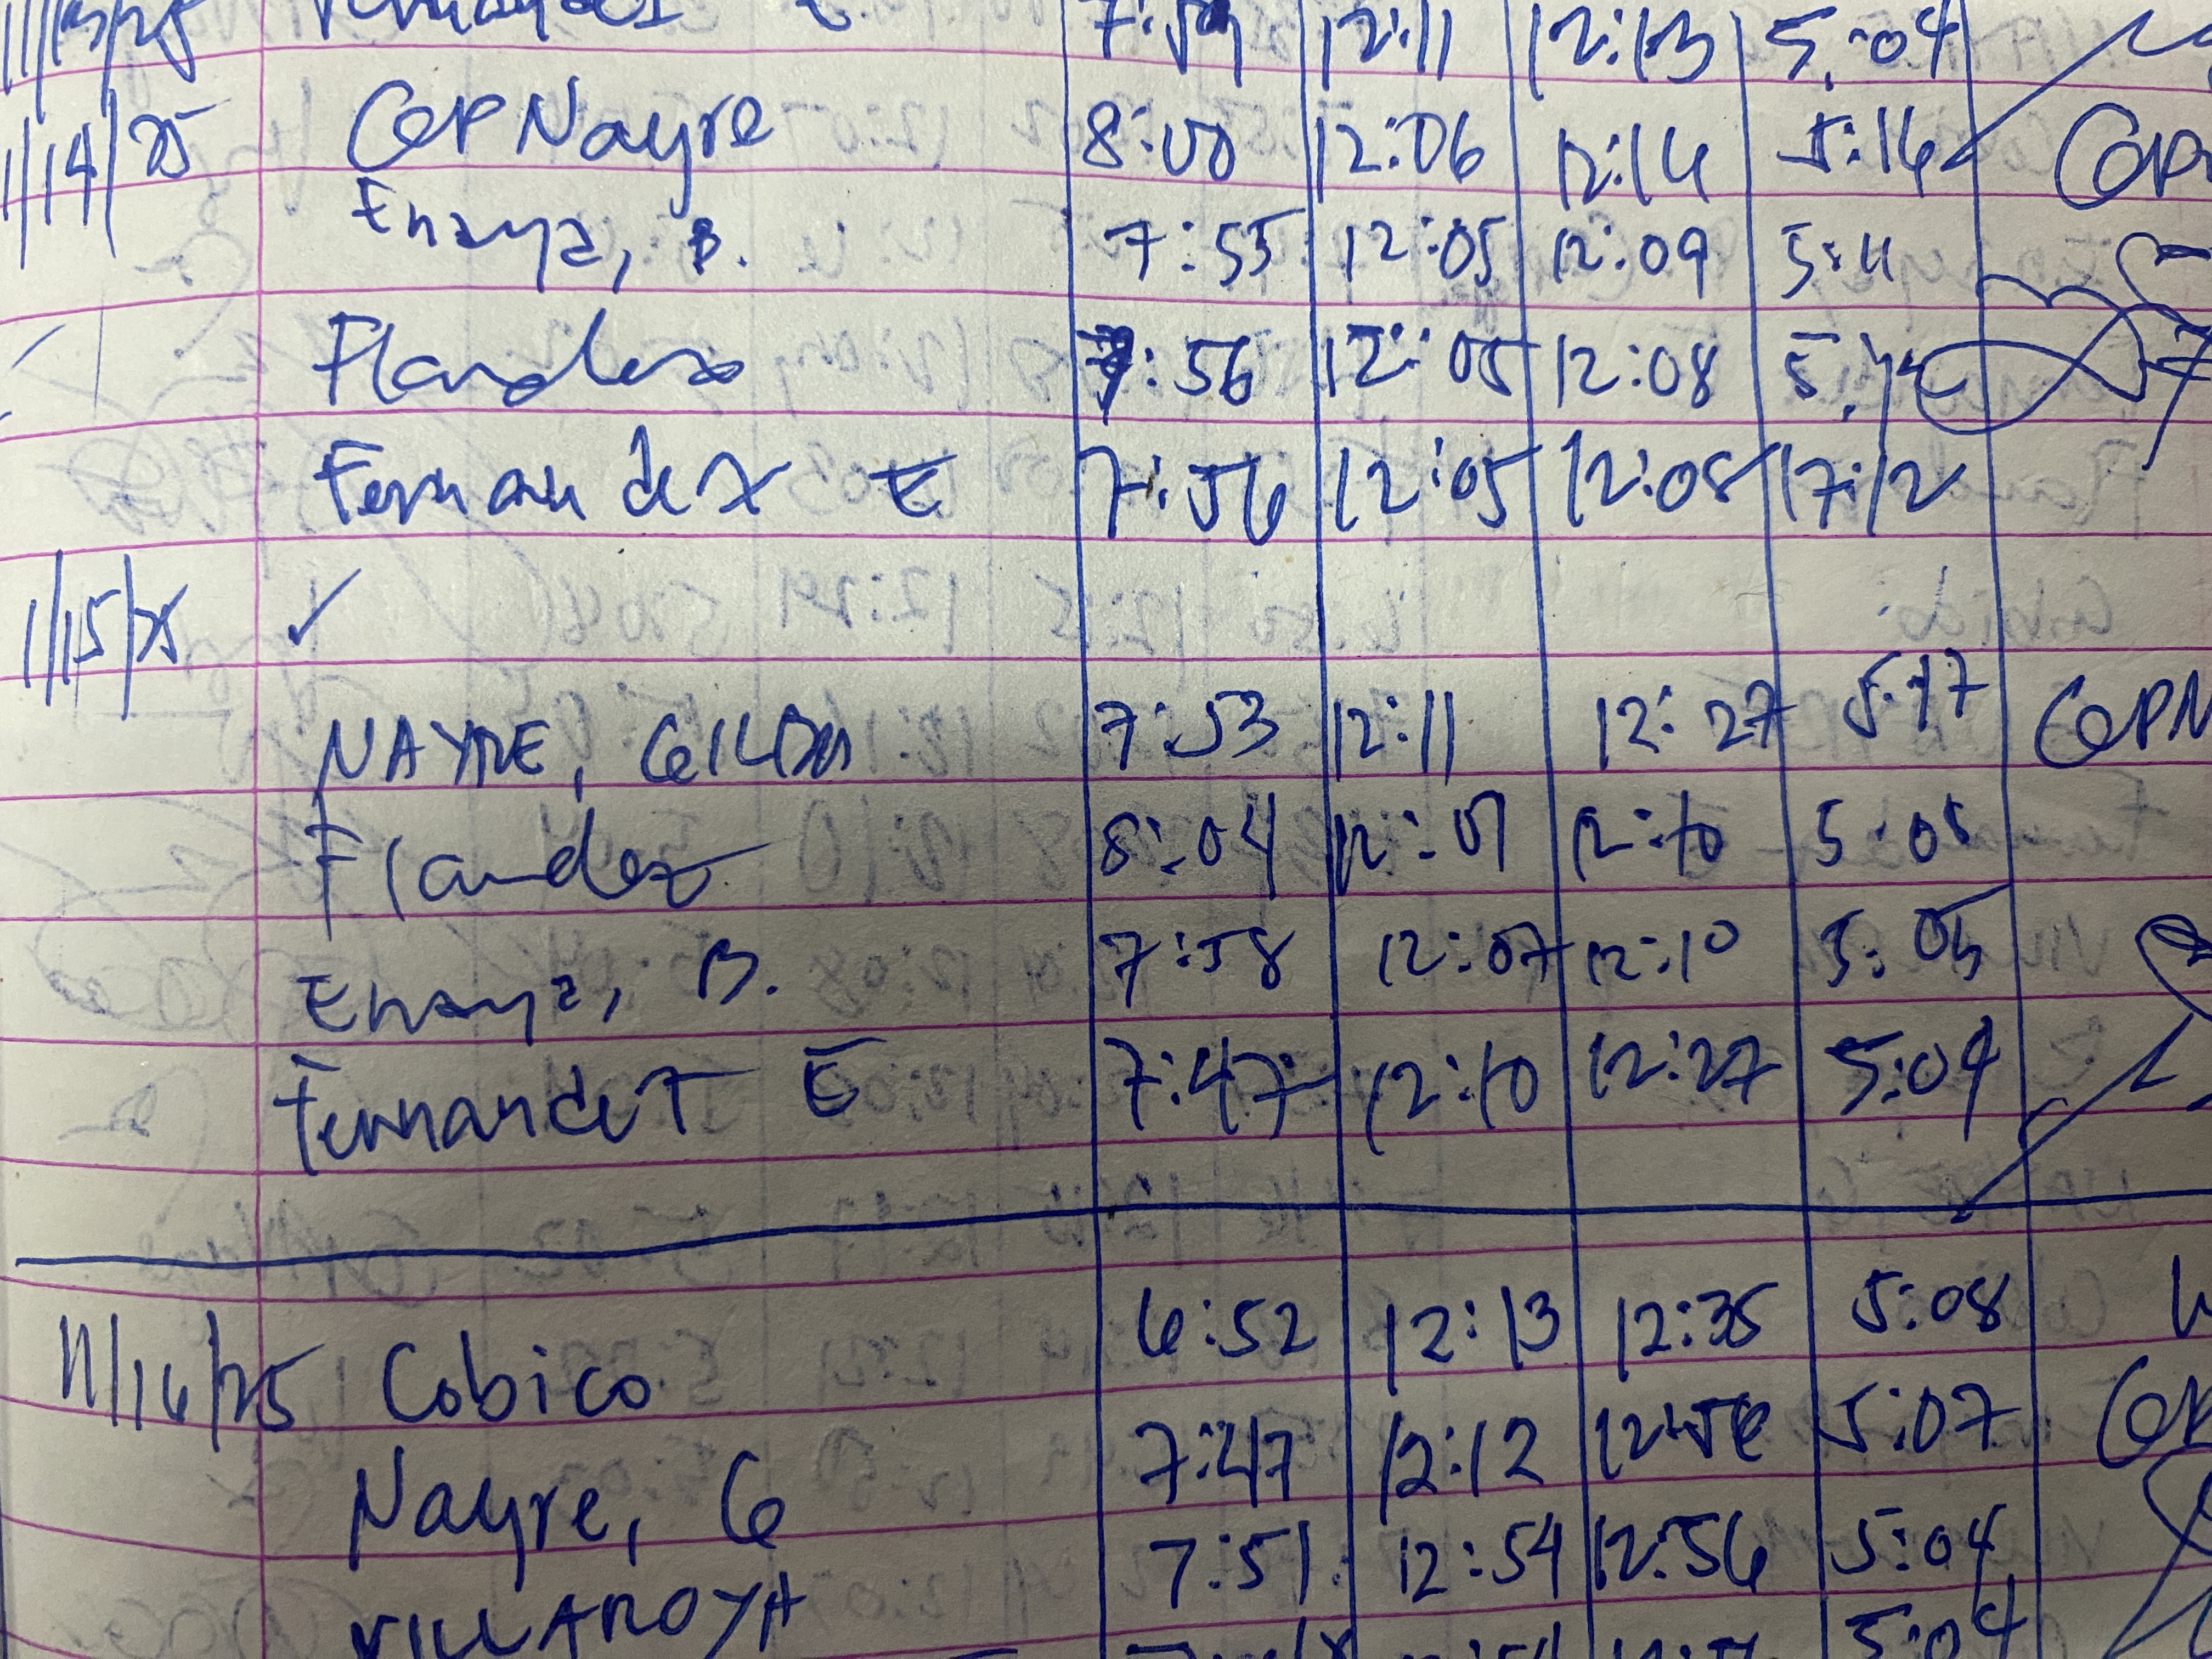 11/13/25 Fernandez E 7:59 12:11 12:13 5:04
1/14/25 GPNayre 8:00 12:06 12:14 5:14
Enaya, B. 7:55 12:05 12:09 5:11
Flandez 7:56 12:05 12:08
Fernandez E 7:56 12:05 12:08 17:12
1/15/25 ✓
NAYRE, GILDA 7:53 12:11 12:27 5:17
Flandez 8:04 12:07 12:10 5:05
Enaya, B. 7:58 12:07 12:10 5:05
Fernandez E 7:47 12:10 12:27 5:04
11/16/25 Cobico 6:52 12:13 12:35 5:08
Nayre, G 7:47 12:12 12:56 5:07
VILLAROYA 7:51 12:54 12:56 5:04
5:04